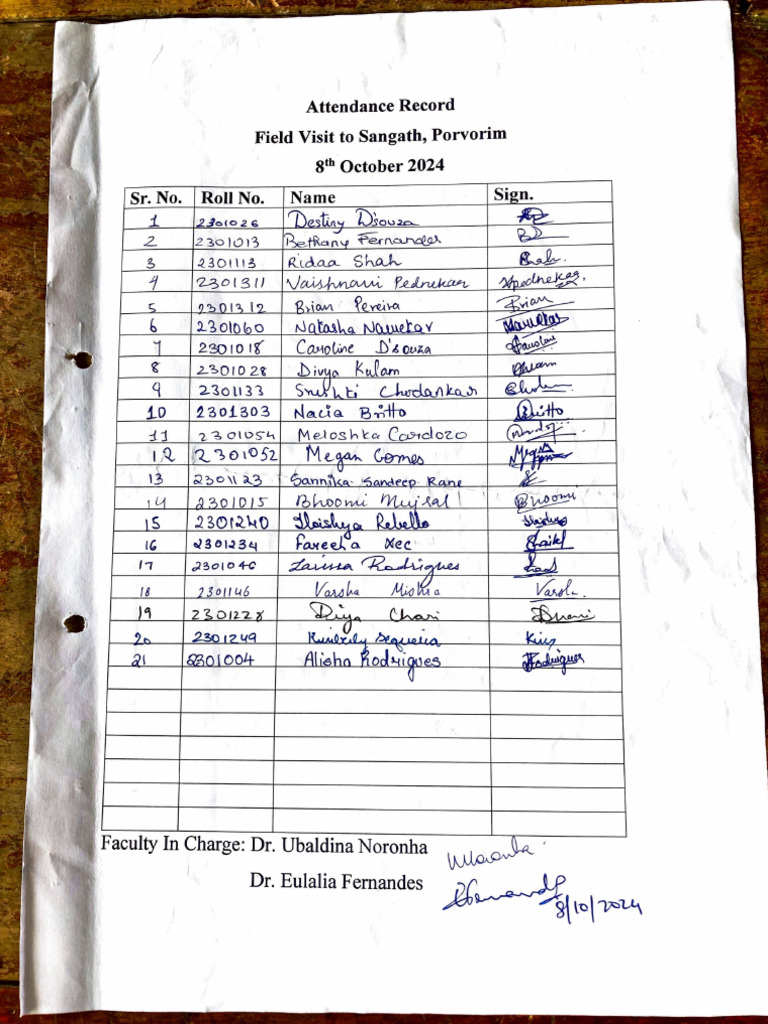 Attendance Record
Field Visit to Sangath, Porvorim
8th October 2024
Sr. No. Roll No. Name Sign.
1 2301026 Destiny D'souza
2 2301013 Bethany Fernandes
3 2301113 Ridaa Shah
4 2301311 Vaishnavi Pednekar Vpednekar
5 2301312 Brian Pereira Brian
6 2301060 Natasha Narvekar
7 2301018 Caroline D'souza Caroline
8 2301028 Divya Kulam
9 2301133 Srushti Chodankar
10 2301303 Nacia Britto Britto
11 2301054 Meloshka Cardozo
12 2301052 Megan Gomes Megan
13 2301123 Sannika Sandeep Rane
14 2301015 Bhoomi Bhoomi
15 2301240 Rebello
16 2301234 Fareeha Xec Shaikh
17 2301046 Larissa Rodrigues
18 2301146 Varsha Mishra Varsha
19 2301228 Diya Chari
20 2301249 Sequeira Kim
21 2301004 Alisha Rodrigues Rodrigues
Faculty In Charge: Dr. Ubaldina Noronha
Dr. Eulalia Fernandes
8/10/2024